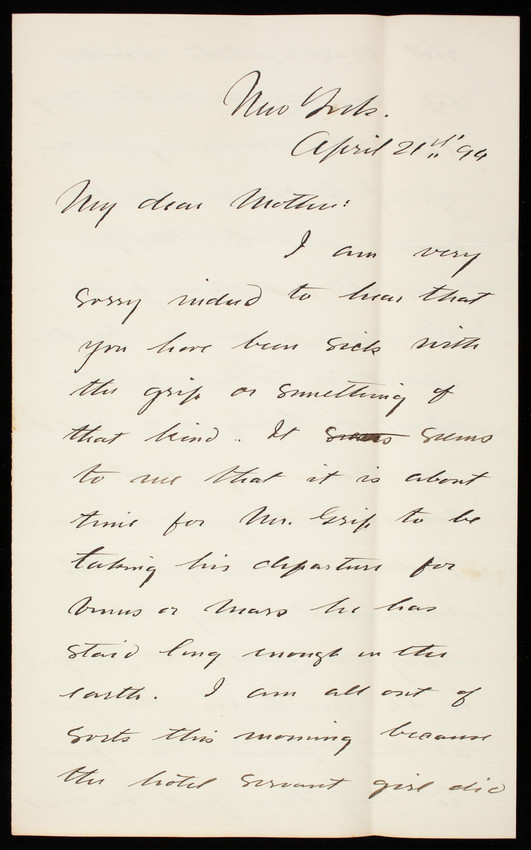 New York.
April 21st 94
My dear Mother:
I am very
sorry indeed to hear that
you have been sick with
the grip or something of
that kind. It seems seems
to me that it is about
time for Mr. Grip to be
taking his departure for
Venus or Mars he has
staid long enough on the
earth. I am all out of
sorts this morning because
the hotel servant girl did